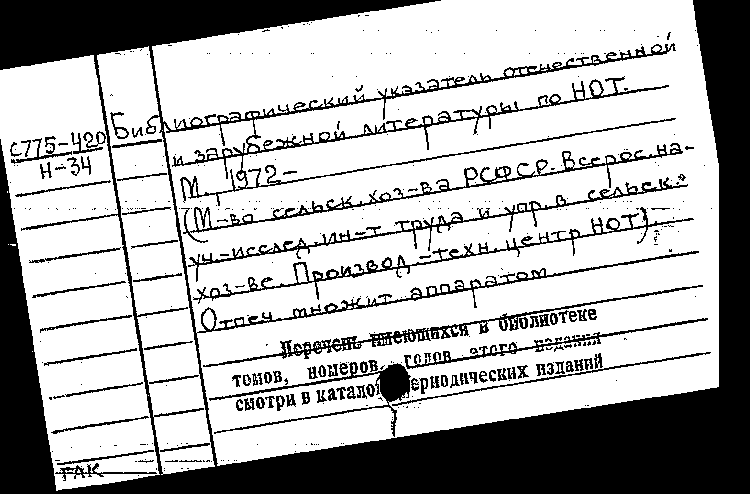 С775-420
Н-34
Библиографический указатель отечественной
и зарубежной литературы по НОТ.
М., 1972-
(М-во сельск. хоз-ва РСФСР. Всерос. на-
уч-исслед. ин-т труда и упр. в сельск.
хоз-ве. Производ.-техн. центр НОТ).
Отпеч. множит. аппаратом
Перечень имеющихся в библиотеке
томов, номеров, годов этого издания
смотри в каталоге периодических изданий
ГАК